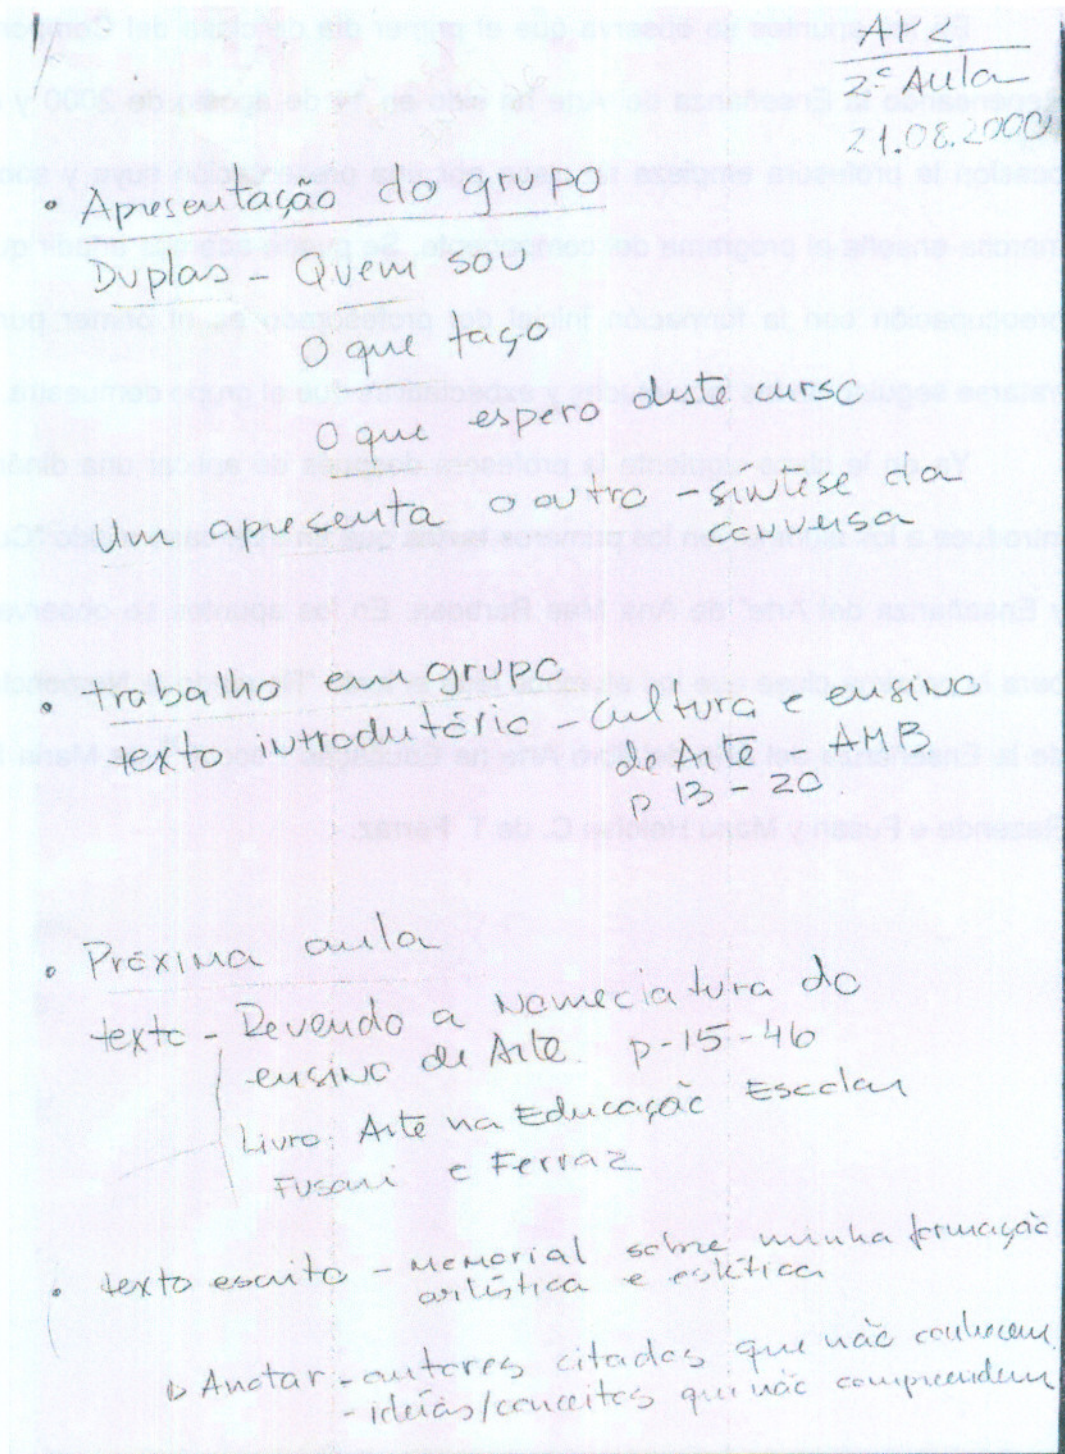 2ª Aula
21.08.2000
• Apresentação do grupo
Duplas - Quem sou
O que faço
O que espero deste curso
Um apresenta o outro - síntese da
conversa
• Trabalho em grupo
texto introdutório - Cultura e ensino
de Arte AMB
p 13 - 20
• Próxima aula
texto - Revendo a Nomeciatura do
ensino de Arte p-15-46
Livro: Arte na Educação Escolar
Fusari e Ferraz
• texto escrito - Memorial sobre minha formação
artística e estética
Anotar - autores citados que não conhecem
- idéias/conceitos que não compreendem